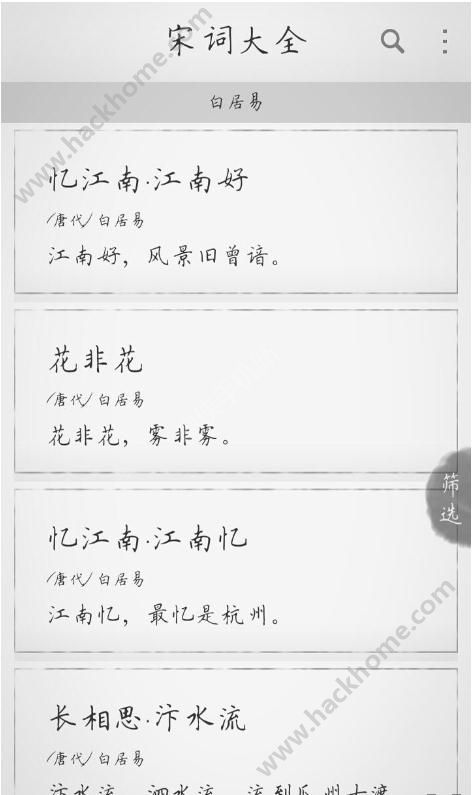 宋词大全
白居易
忆江南·江南好
(唐代) 白居易
江南好，风景旧曾谙。
花非花
(唐代) 白居易
花非花，雾非雾。
筛选
忆江南·江南忆
(唐代) 白居易
江南忆，最忆是杭州。
长相思·汴水流
(唐代) 白居易
汴水流，泗水流，流到瓜州古渡
www.hackhome.com
www.hackhome.com